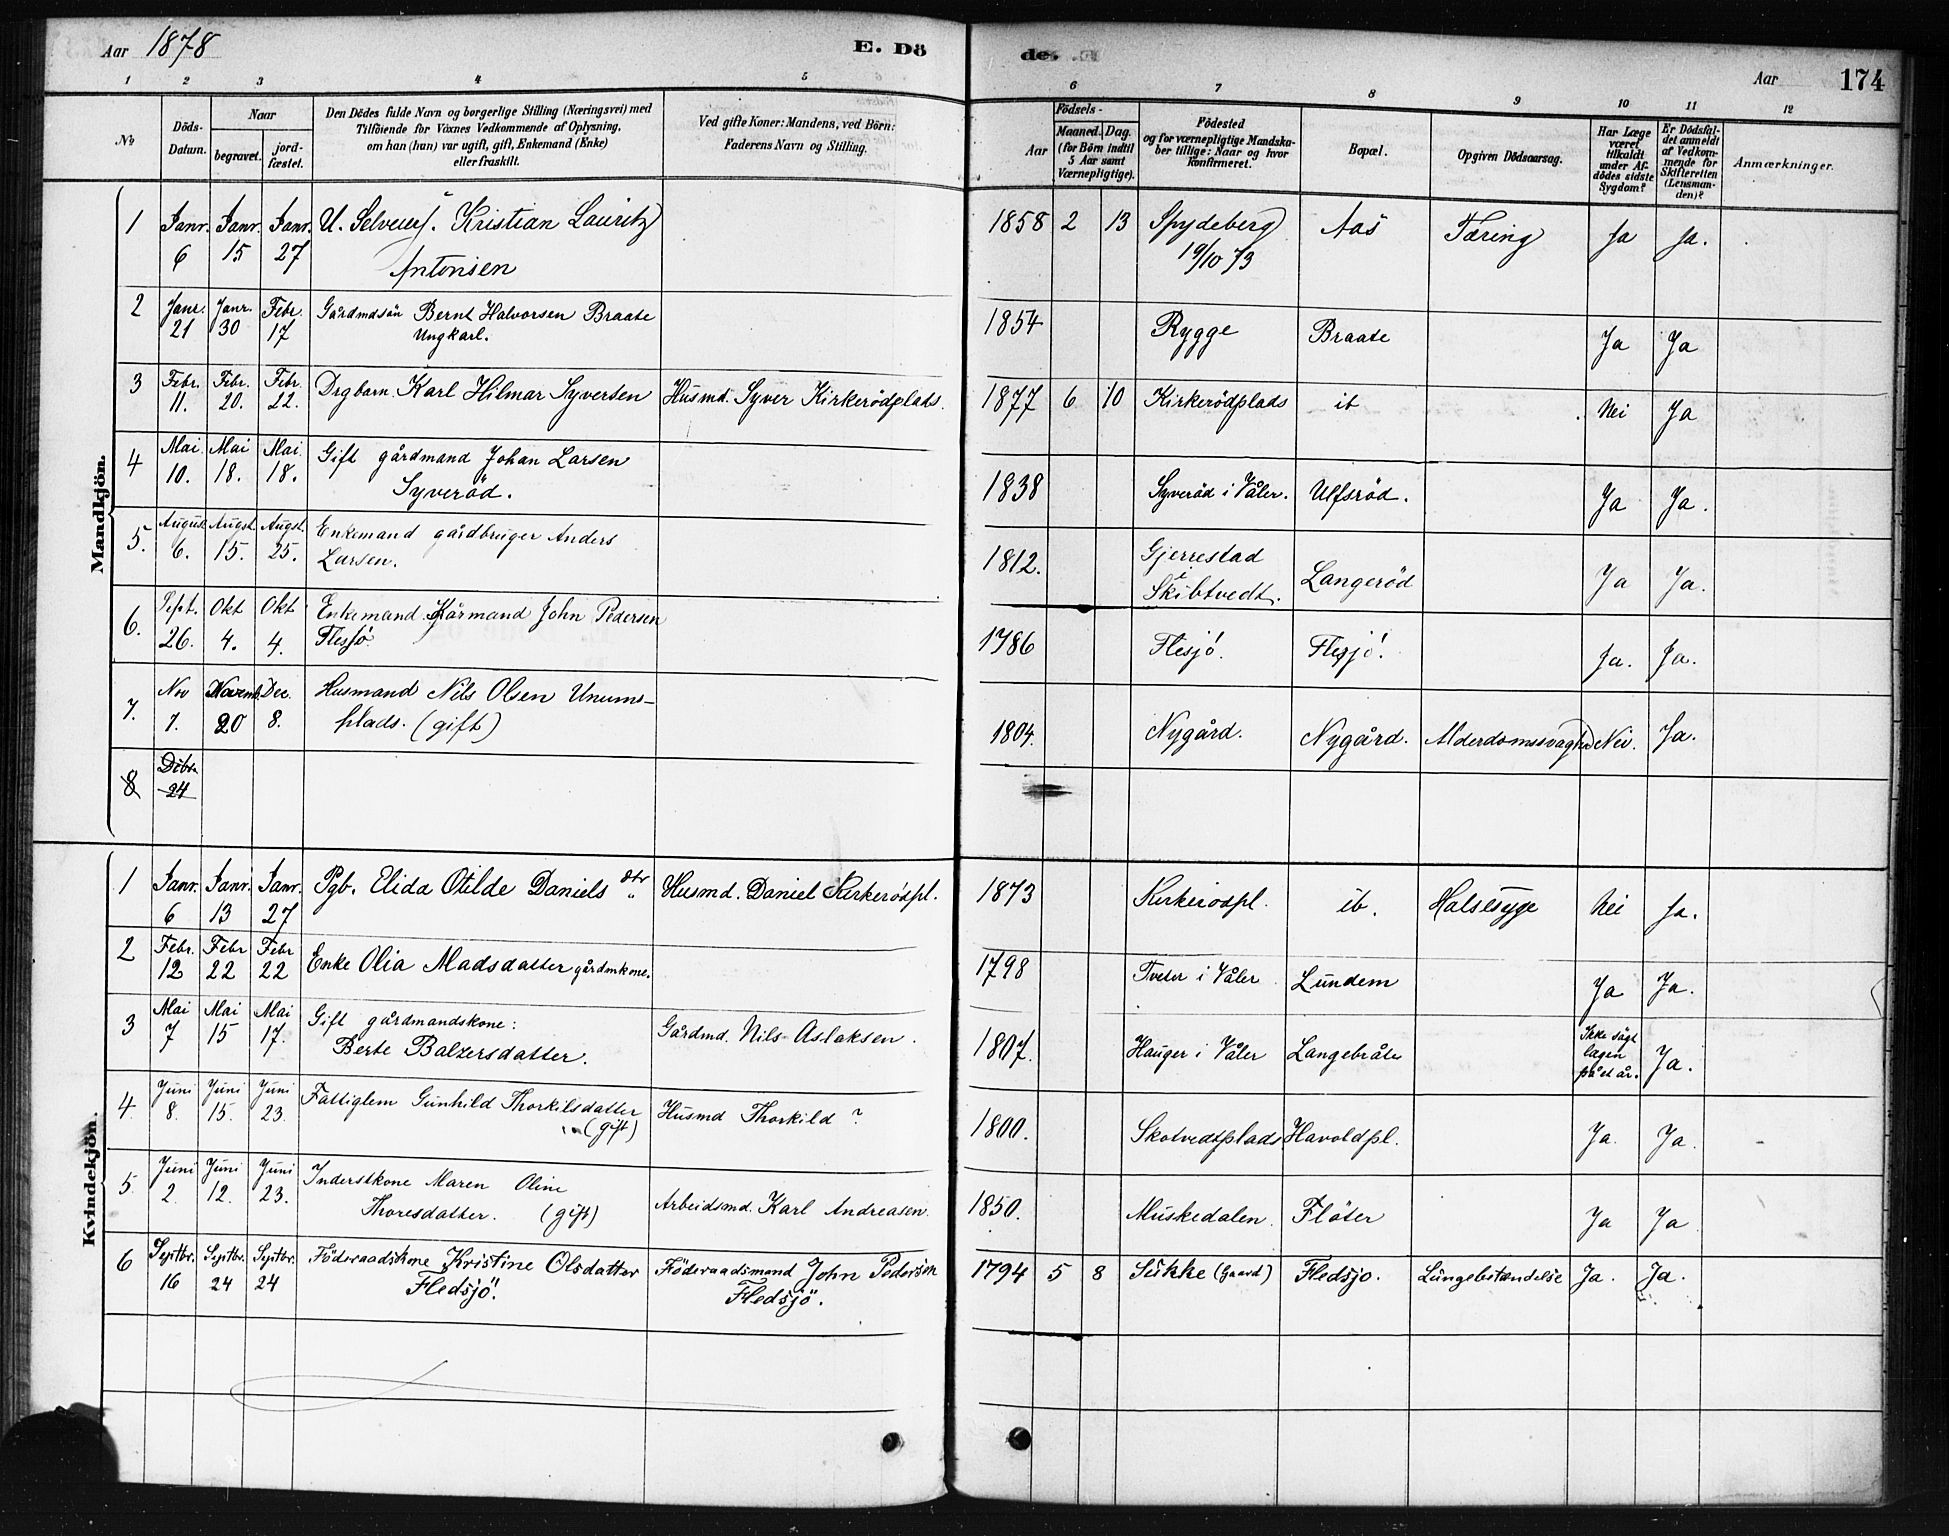 Aar 1878 E. Dö
de. Aar 174
1 2 3 4 5
6 7 8 9 10 11 12
No
Döds-Datum.
Naar
begravet. jordfæstet.
Den Dödes fulde Navn og borgerlige Stilling (Næringsvei) med
Tilföiende for Voxnes Vedkommende af Oplysning,
om han (hun) var ugift, gift, Enkemand (Enke)
eller fraskilt.
Ved gifte Koner: Mandens, ved Börn:
Faderens Navn og Stilling.
Födsels-
Aar Maaned. Dag.
(for Börn indtil
5 Aar samt
Værnepligtige).
Födested
og for værnepligtige Mandskaber tillige: Naar og hvor
konfirmeret.
Bopæl.
Opgiven Dödsaarsag.
Har Læge
været
tilkaldt
under Afdödes sidste
Sygdom?
Er Dödsfaldet anmeldt
af Vedkommende for
Skifteretten
(Lensmanden)?
Anmærkninger.
Mandkjön.
1 Janr. 6 Janr. 15 Janr. 27 U. Selveierf. Kristian Lauritz
Antonsen
1858 2 13 Spydeberg 19/10 73 Aas Tæring Ja Ja.
2 Janr. 21 Janr. 30 Febr. 17 Gårdmdsön Bernt Halvorsen Braate
Ungkarl.
1854 Rygge Braate Ja Ja
3 Febr. 11. Febr. 20. Febr. 22. Drgbarn Karl Hilmar Syversen Husmd. Syver Kirkerödplads.
1877 6 10 Kirkerödplads ib Nei Ja
4 Mai 10. Mai 18. Mai 18. Gift gårdmand Johan Larsen
Syveröd.
1838 Syveröd i Våler. Ulfsröd. Ja Ja.
5. August 6. Augst. 15. Augst. 25. Enkemand gårdbruger Anders
Larsen.
1812. Gjerrestad i Skibtvedt. Langeröd Ja Ja.
6. Sept. 26. Okt 4. Okt 4. Enkemand Kårmand John Pedersen
Flesjö
1786 Flesjö. Flesjö. Ja. Ja.
7. Nov 7. Novemb. 20 Dec. 8. Husmand Nils Olsen Unums-
plads. (gift)
1804. Nygård. Nygård. Alderdomssvaghd Nei. Ja.
8 Debr. 24
Kvindekjön.
1 Janr. 6 Janr. 13 Janr. 27 Pgb. Elida Otilde Daniels dtr Husmd. Daniel Kirkerödpl.
1873 Kirkerödpl. ib. Halsesyge Nei Ja.
2 Febr. 12 Febr 22 Febr 22 Enke Olia Madsdatter gårdmkone.
1798 Tveter i Våler Lundem Ja Ja.
3 Mai 7 Mai 15 Mai 17. Gift gårdmandskone:
Berte Balzersdatter. Gårdmd. Nils Aslaksen.
1807. Hauger i Våler Langebråte Ikke sögt lægen på et år. Ja.
4. Juni 8. Juni 15. Juni 23. Fattiglem Gunhild Thorkilsdatter
(gift) Husmd Thorkild ?
1800. Skotvedtplads Havoldpl. Ja. Ja.
5. Juni 2. Juni 12. Juni 23. Inderstkone Maren Oline
Thoresdatter. (gift) Arbeidsmd. Karl Andreasen.
1850. Muskedalen. Flöter Ja Ja
6 Septbr. 16 Septbr. 24 Septbr. 24 Föderaadskone Kristine Olsdatter
Fledsjö. Föderaadsmand John Pedersen
Fledsjö.
1794 5 8 Sukke (Gaard) Fledsjö. Lungebetændelse Ja. Ja.